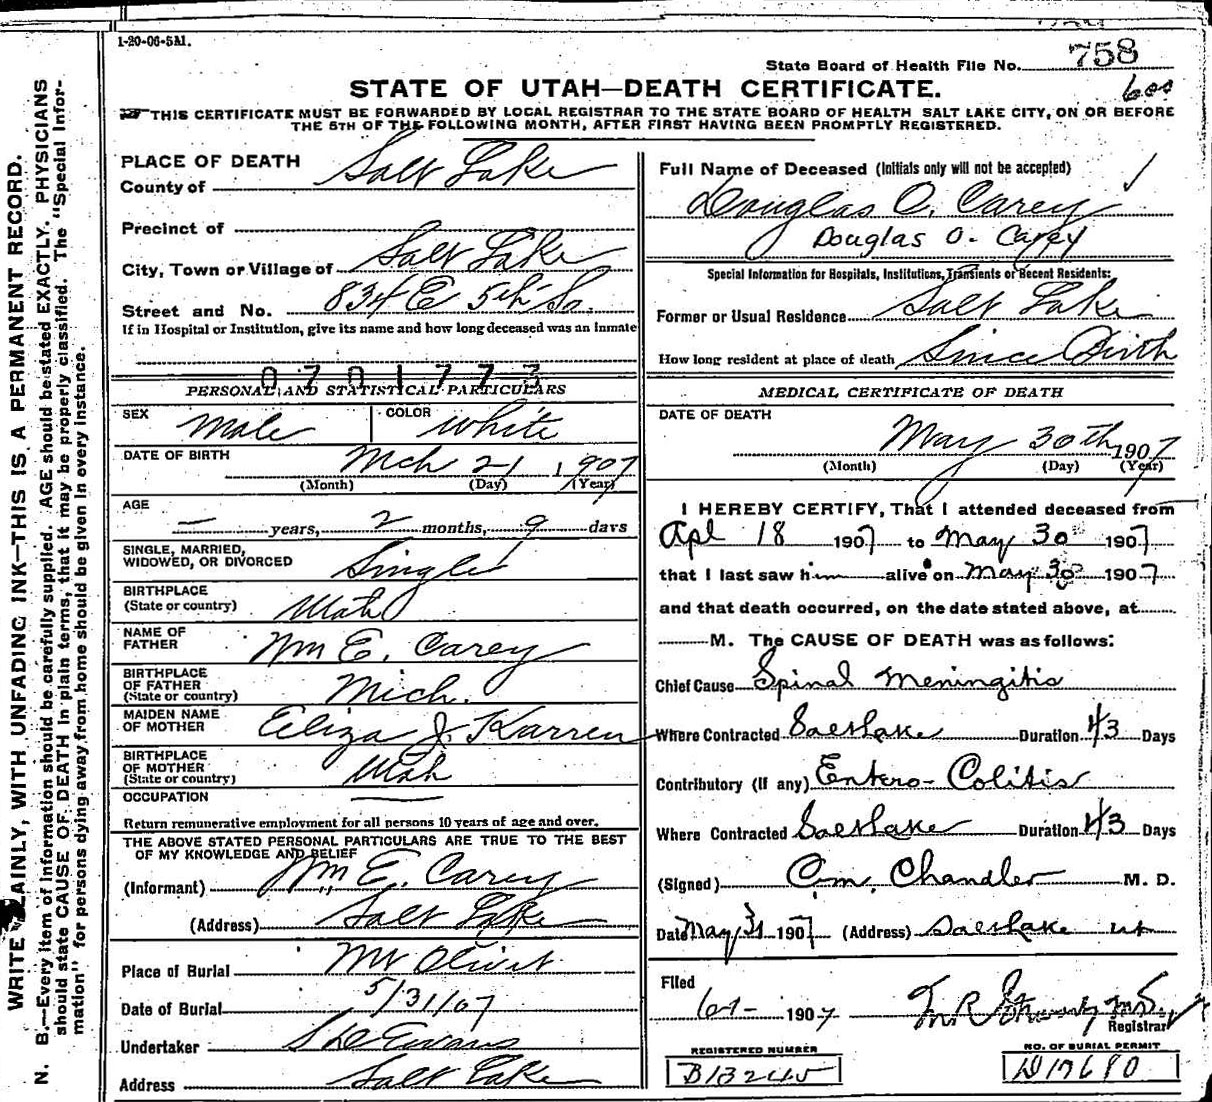 1-20-06-5M.
State Board of Health File No. 758
600
STATE OF UTAH—DEATH CERTIFICATE.
THIS CERTIFICATE MUST BE FORWARDED BY LOCAL REGISTRAR TO THE STATE BOARD OF HEALTH SALT LAKE CITY, ON OR BEFORE
THE 5TH OF THE FOLLOWING MONTH, AFTER FIRST HAVING BEEN PROMPTLY REGISTERED.
WRITE PLAINLY, WITH UNFADING INK—THIS IS A PERMANENT RECORD.
N. B.—Every item of information should be carefully supplied. AGE should be stated EXACTLY. PHYSICIANS
should state CAUSE OF DEATH in plain terms, that it may be properly classified. The "Special Infor-
mation" for persons dying away from home should be given in every instance.
PLACE OF DEATH
County of Salt Lake
Precinct of
City, Town or Village of Salt Lake
Street and No. 834 E 5th So.
If in Hospital or Institution, give its name and how long deceased was an inmate
0701773
PERSONAL AND STATISTICAL PARTICULARS
SEX Male COLOR White
DATE OF BIRTH Mch 21, 1907
(Month) (Day) (Year)
AGE
— years, 2 months, 9 days
SINGLE, MARRIED,
WIDOWED, OR DIVORCED Single
BIRTHPLACE
(State or country) Utah
NAME OF
FATHER Wm E. Carey
BIRTHPLACE
OF FATHER
(State or country) Mich.
MAIDEN NAME
OF MOTHER Eliza J. Karren
BIRTHPLACE
OF MOTHER
(State or country) Utah
OCCUPATION —
Return remunerative employment for all persons 10 years of age and over.
THE ABOVE STATED PERSONAL PARTICULARS ARE TRUE TO THE BEST
OF MY KNOWLEDGE AND BELIEF
(Informant) Wm E. Carey
(Address) Salt Lake
Place of Burial Mt Olivet
Date of Burial 5/31/07
Undertaker S D Evans
Address Salt Lake
Full Name of Deceased (Initials only will not be accepted)
Douglas O. Carey
Douglas O. Carey
Special Information for Hospitals, Institutions, Transients or Recent Residents:
Former or Usual Residence Salt Lake
How long resident at place of death Since Birth
MEDICAL CERTIFICATE OF DEATH
DATE OF DEATH
May 30th 1907
(Month) (Day) (Year)
I HEREBY CERTIFY, That I attended deceased from
Apl 18 1907 to May 30 1907
that I last saw him alive on May 30 1907
and that death occurred, on the date stated above, at
M. The CAUSE OF DEATH was as follows:
Chief Cause Spinal Meningitis
Where Contracted Salt Lake Duration 43 Days
Contributory (if any) Entero-Colitis
Where Contracted Salt Lake Duration 43 Days
(Signed) C.M. Chandler M. D.
Date May 31 1907 (Address) Salt Lake Ut
Filed
1907
Registrar
REGISTERED NUMBER
B13245
NO. OF BURIAL PERMIT
D17680